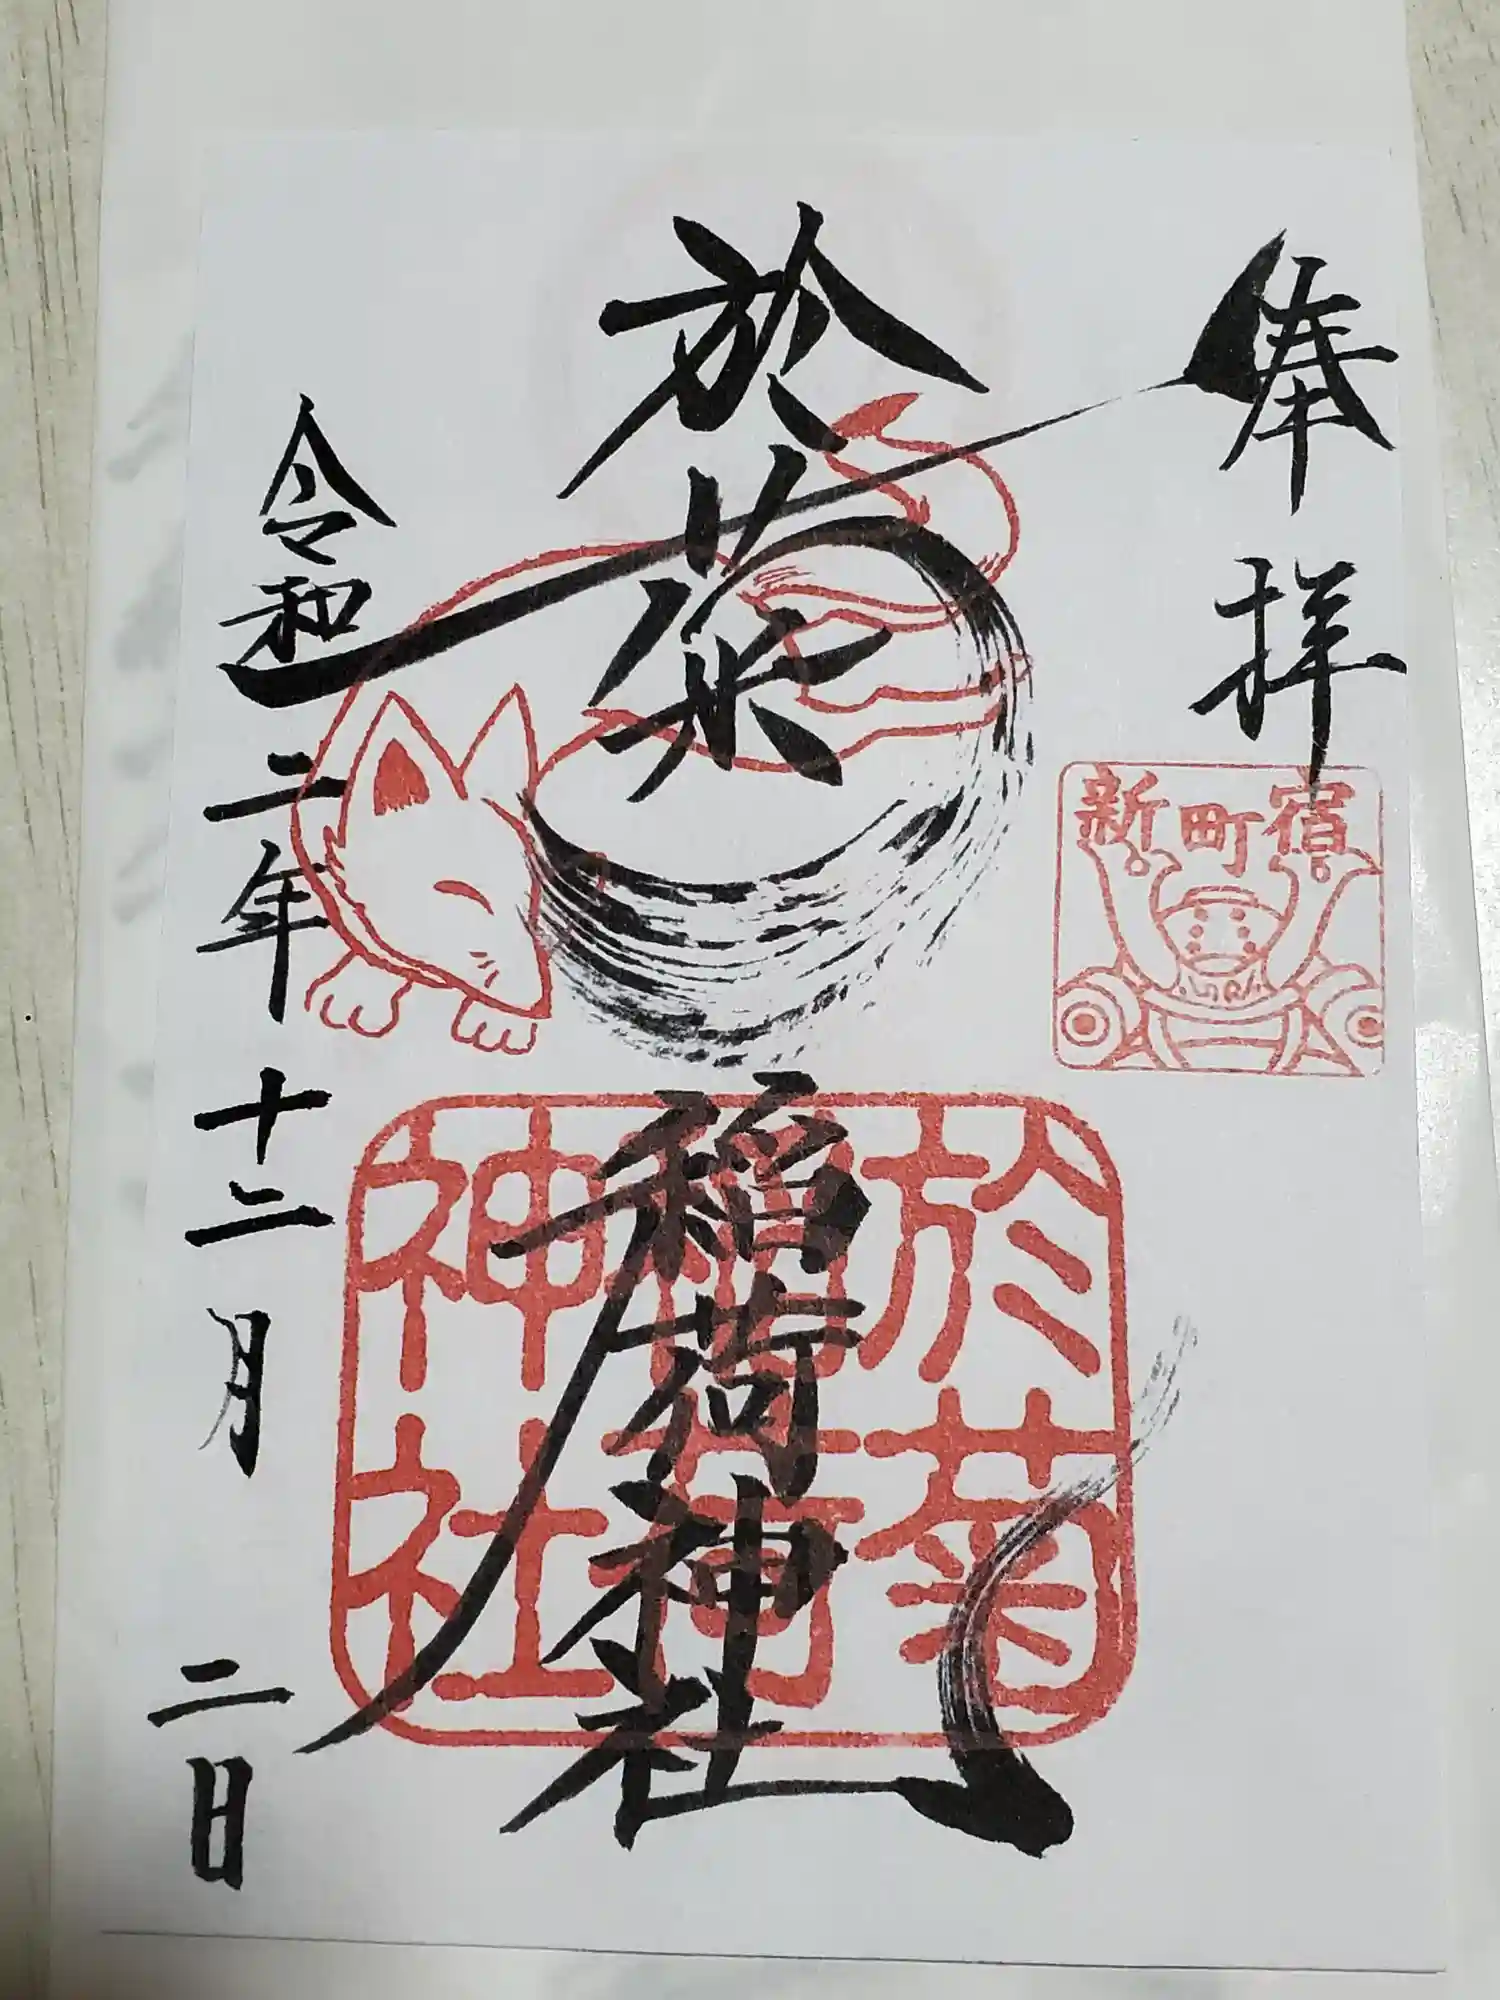 奉拝
新町宿
於菊稲荷神社
於菊
稲荷
神社
令和二年十二月二日